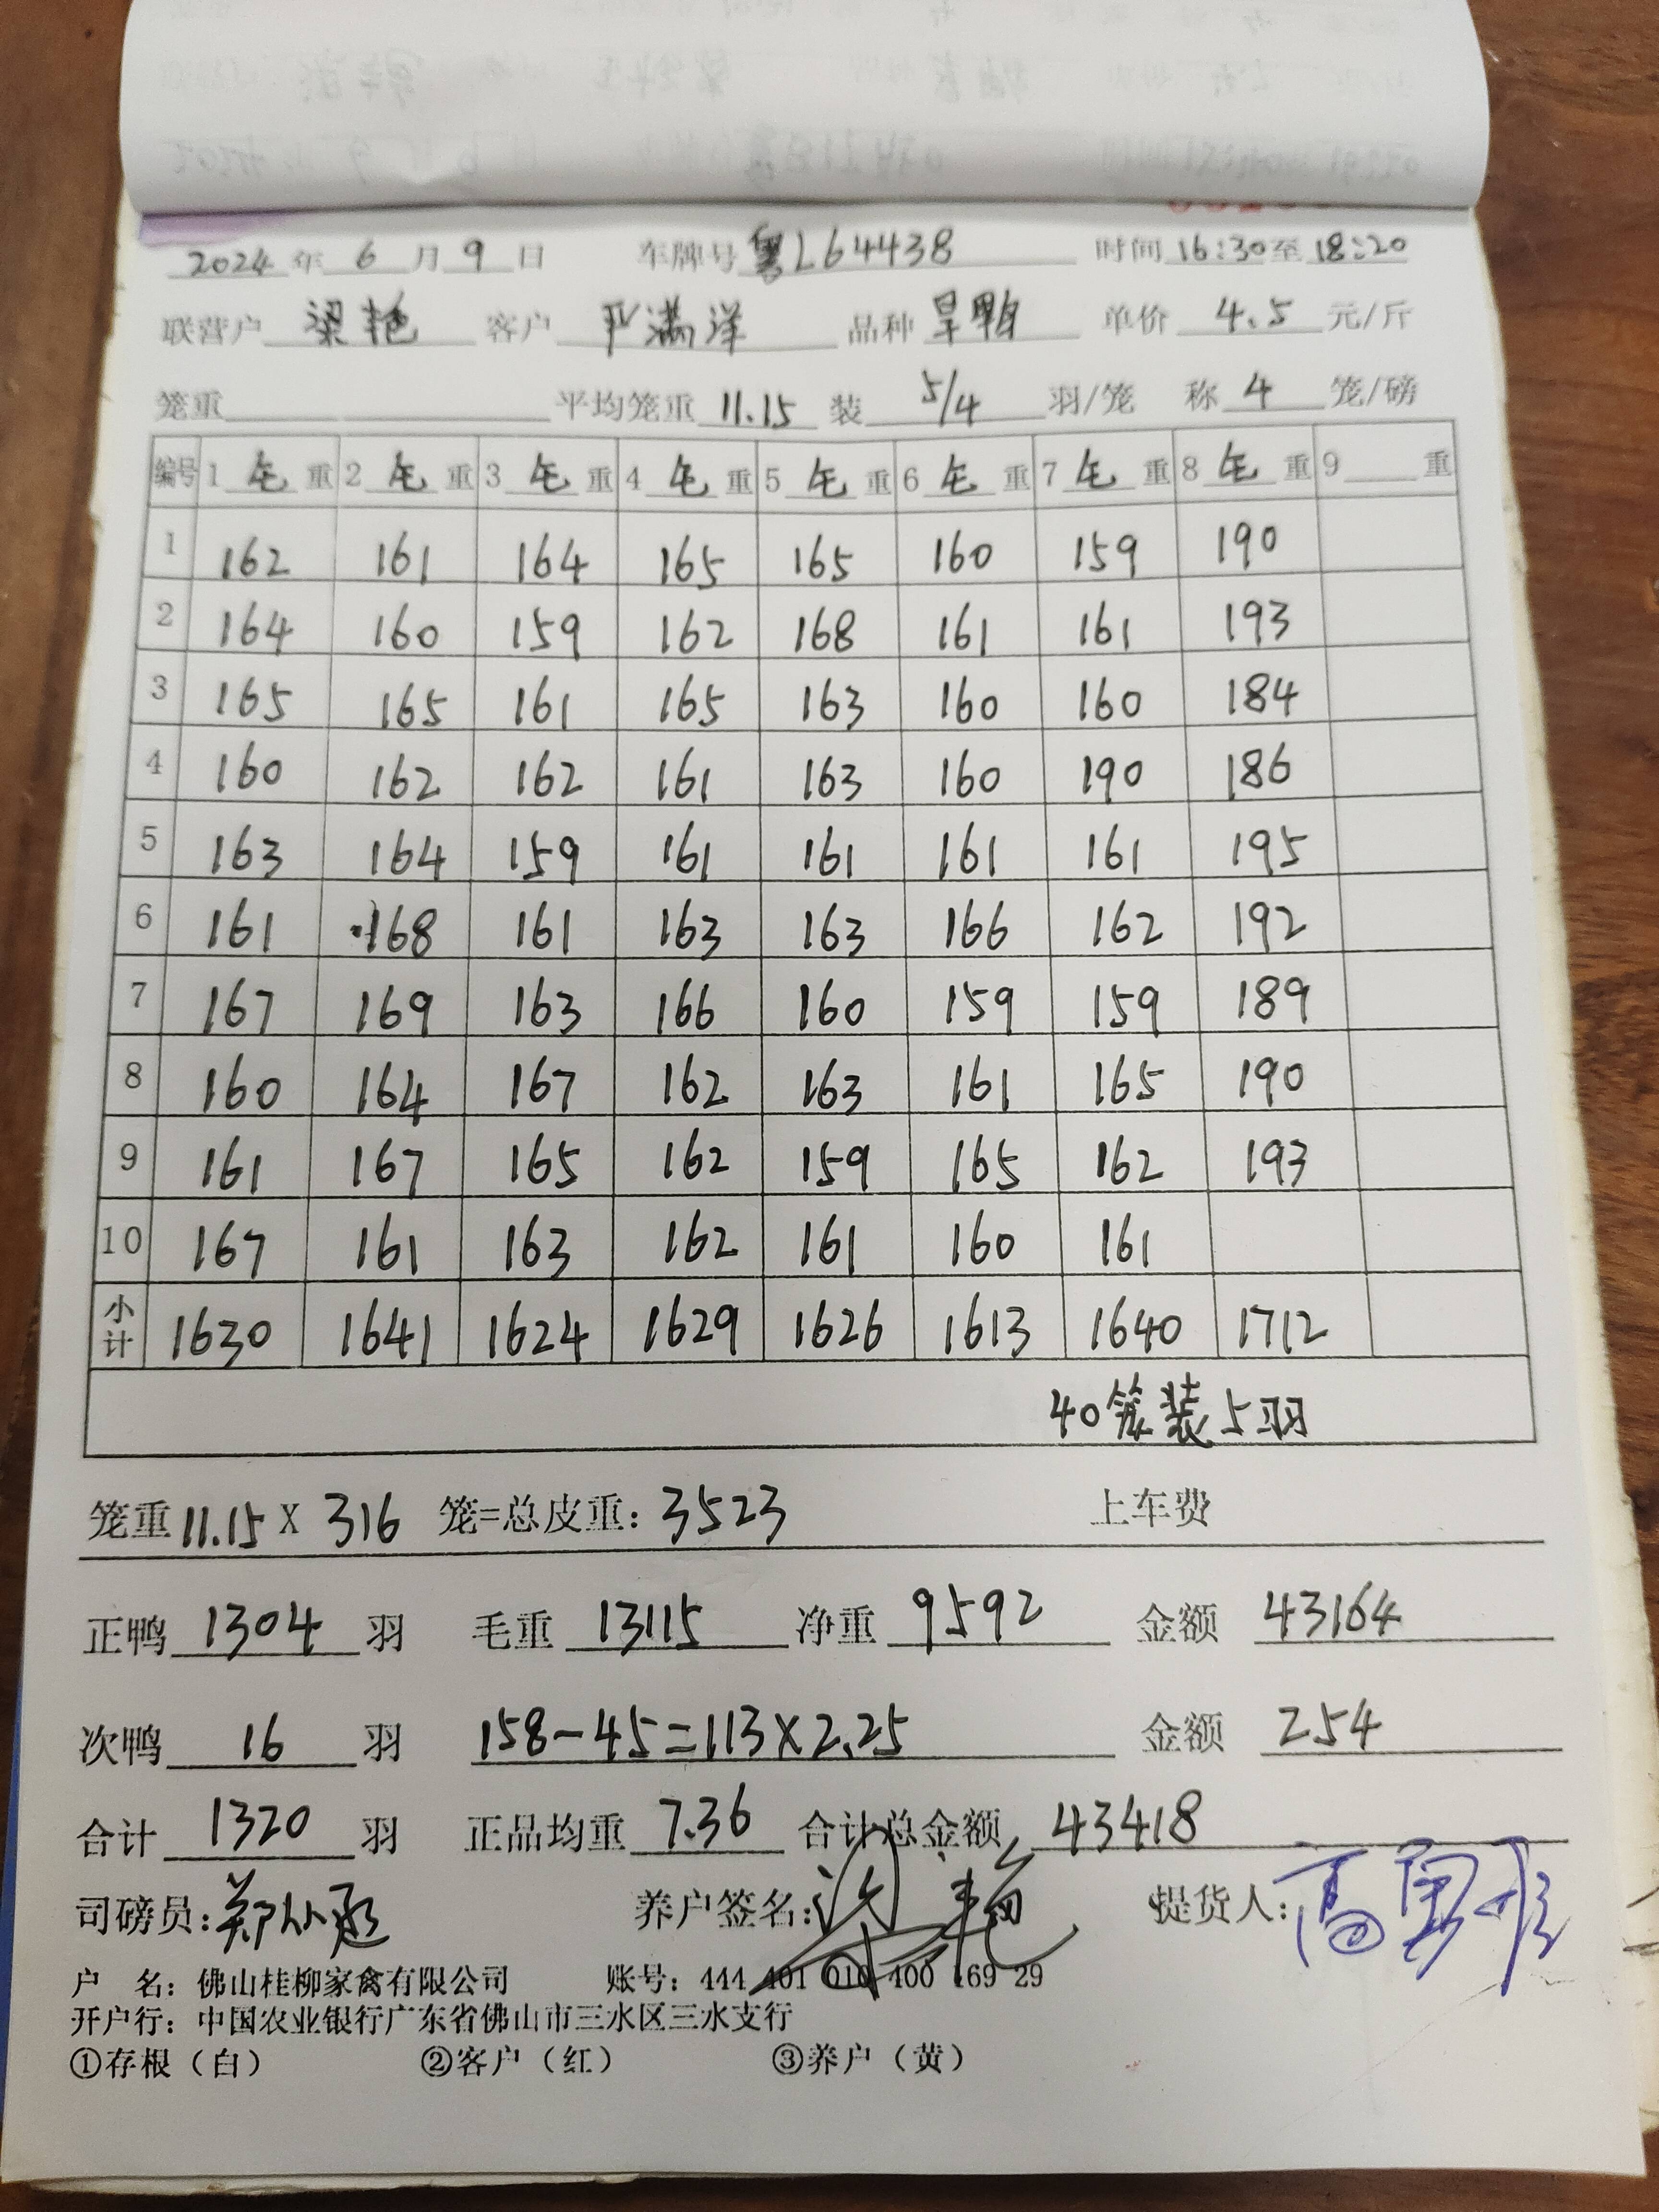 2024年 6 月 9 日 车牌号 粤L64438 时间 16:30至 18:20
联营户 梁艳 客户 严满洋 品种 旱鸭 单价 4.5 元/斤
笼重 平均笼重 11.15 装 5/4 羽/笼 称 4 笼/磅
编号 1 毛 重 2 毛 重 3 毛 重 4 毛 重 5 毛 重 6 毛 重 7 毛 重 8 毛 重 9 重
1 162 161 164 165 165 160 159 190
2 164 160 159 162 168 161 161 193
3 165 165 161 165 163 160 160 184
4 160 162 162 161 163 160 190 186
5 163 164 159 161 161 161 161 195
6 161 168 161 163 163 166 162 192
7 167 169 163 166 160 159 159 189
8 160 164 167 162 163 161 165 190
9 161 167 165 162 159 165 162 193
10 167 161 163 162 161 160 161
小计 1630 1641 1624 1629 1626 1613 1640 1712
40笼装5羽
笼重 11.15 X 316 笼=总皮重: 3523 上车费
正鸭 1304 羽 毛重 13115 净重 9592 金额 43164
次鸭 16 羽 158-45=113×2.25 金额 254
合计 1320 羽 正品均重 7.36 合计总金额 43418
司磅员: 养户签名: 梁艳 提货人:
户 名: 佛山桂柳家禽有限公司 账号: 444 401 010 400 169 29
开户行: 中国农业银行广东省佛山市三水区三水支行
①存根（白） ②客户（红） ③养户（黄）